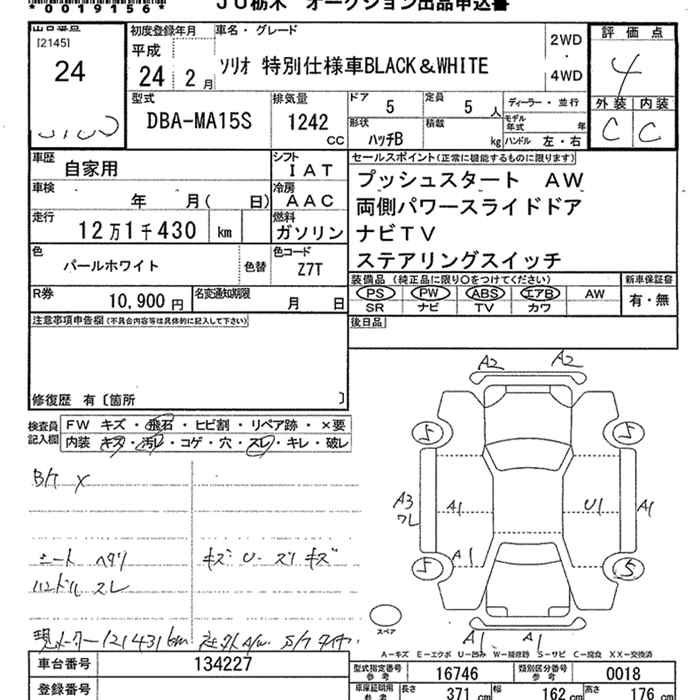 *0019156*
JU栃木 オークション出品申込書
出品番号
[2145]
24
初度登録年月
平成
24 2 月
車名・グレード
ソリオ 特別仕様車BLACK&WHITE
2WD
・
4WD
評価点
4
外装 内装
C C
型式
DBA-MA15S
排気量
1242
CC
ドア
5
定員
5 人
形状
ハッチB
積載
kg
ディーラー・並行
モデル年式
年
ハンドル 左・右
車歴
自家用
シフト
IAT
車検
年 月( 日)
冷房
AAC
走行
12万1千430 km
燃料
ガソリン
色
パールホワイト
色替
色コード
Z7T
R券
10,900 円
名変通知期限
月 日
セールスポイント(正常に機能するものに限ります)
プッシュスタート AW
両側パワースライドドア
ナビTV
ステアリングスイッチ
装備品 (純正品に限り○をつけてください)
PS PW ABS エアB AW
SR ナビ TV カワ
新車保証書
有・無
後日品
注意事項申告欄(不具合内容等は具体的に記入して下さい)
修復歴 有〔箇所 〕
検査員記入欄
FW キズ・飛石・ヒビ割・リペア跡・×要
内装・キズ・汚レ・コゲ・穴・スレ・キレ・破レ
シート ヘタリ
キズ U スリキズ
ハンドル スレ
現メーター121431km 社外A/W S/Tタイヤ
A2 A2
5 5
A3
ワレ
A1 U1 A1
A1
5 5
スペア
A1 A1
A-キズ E-エクボ U-凹み W-補修跡 S-サビ C-腐食 XX-交換済
車台番号
134227
登録番号
型式指定番号
参考
16746
類別区分番号
参考
0018
車庫証明用
参考
長さ
371 cm
幅
162 cm
高さ
176 cm